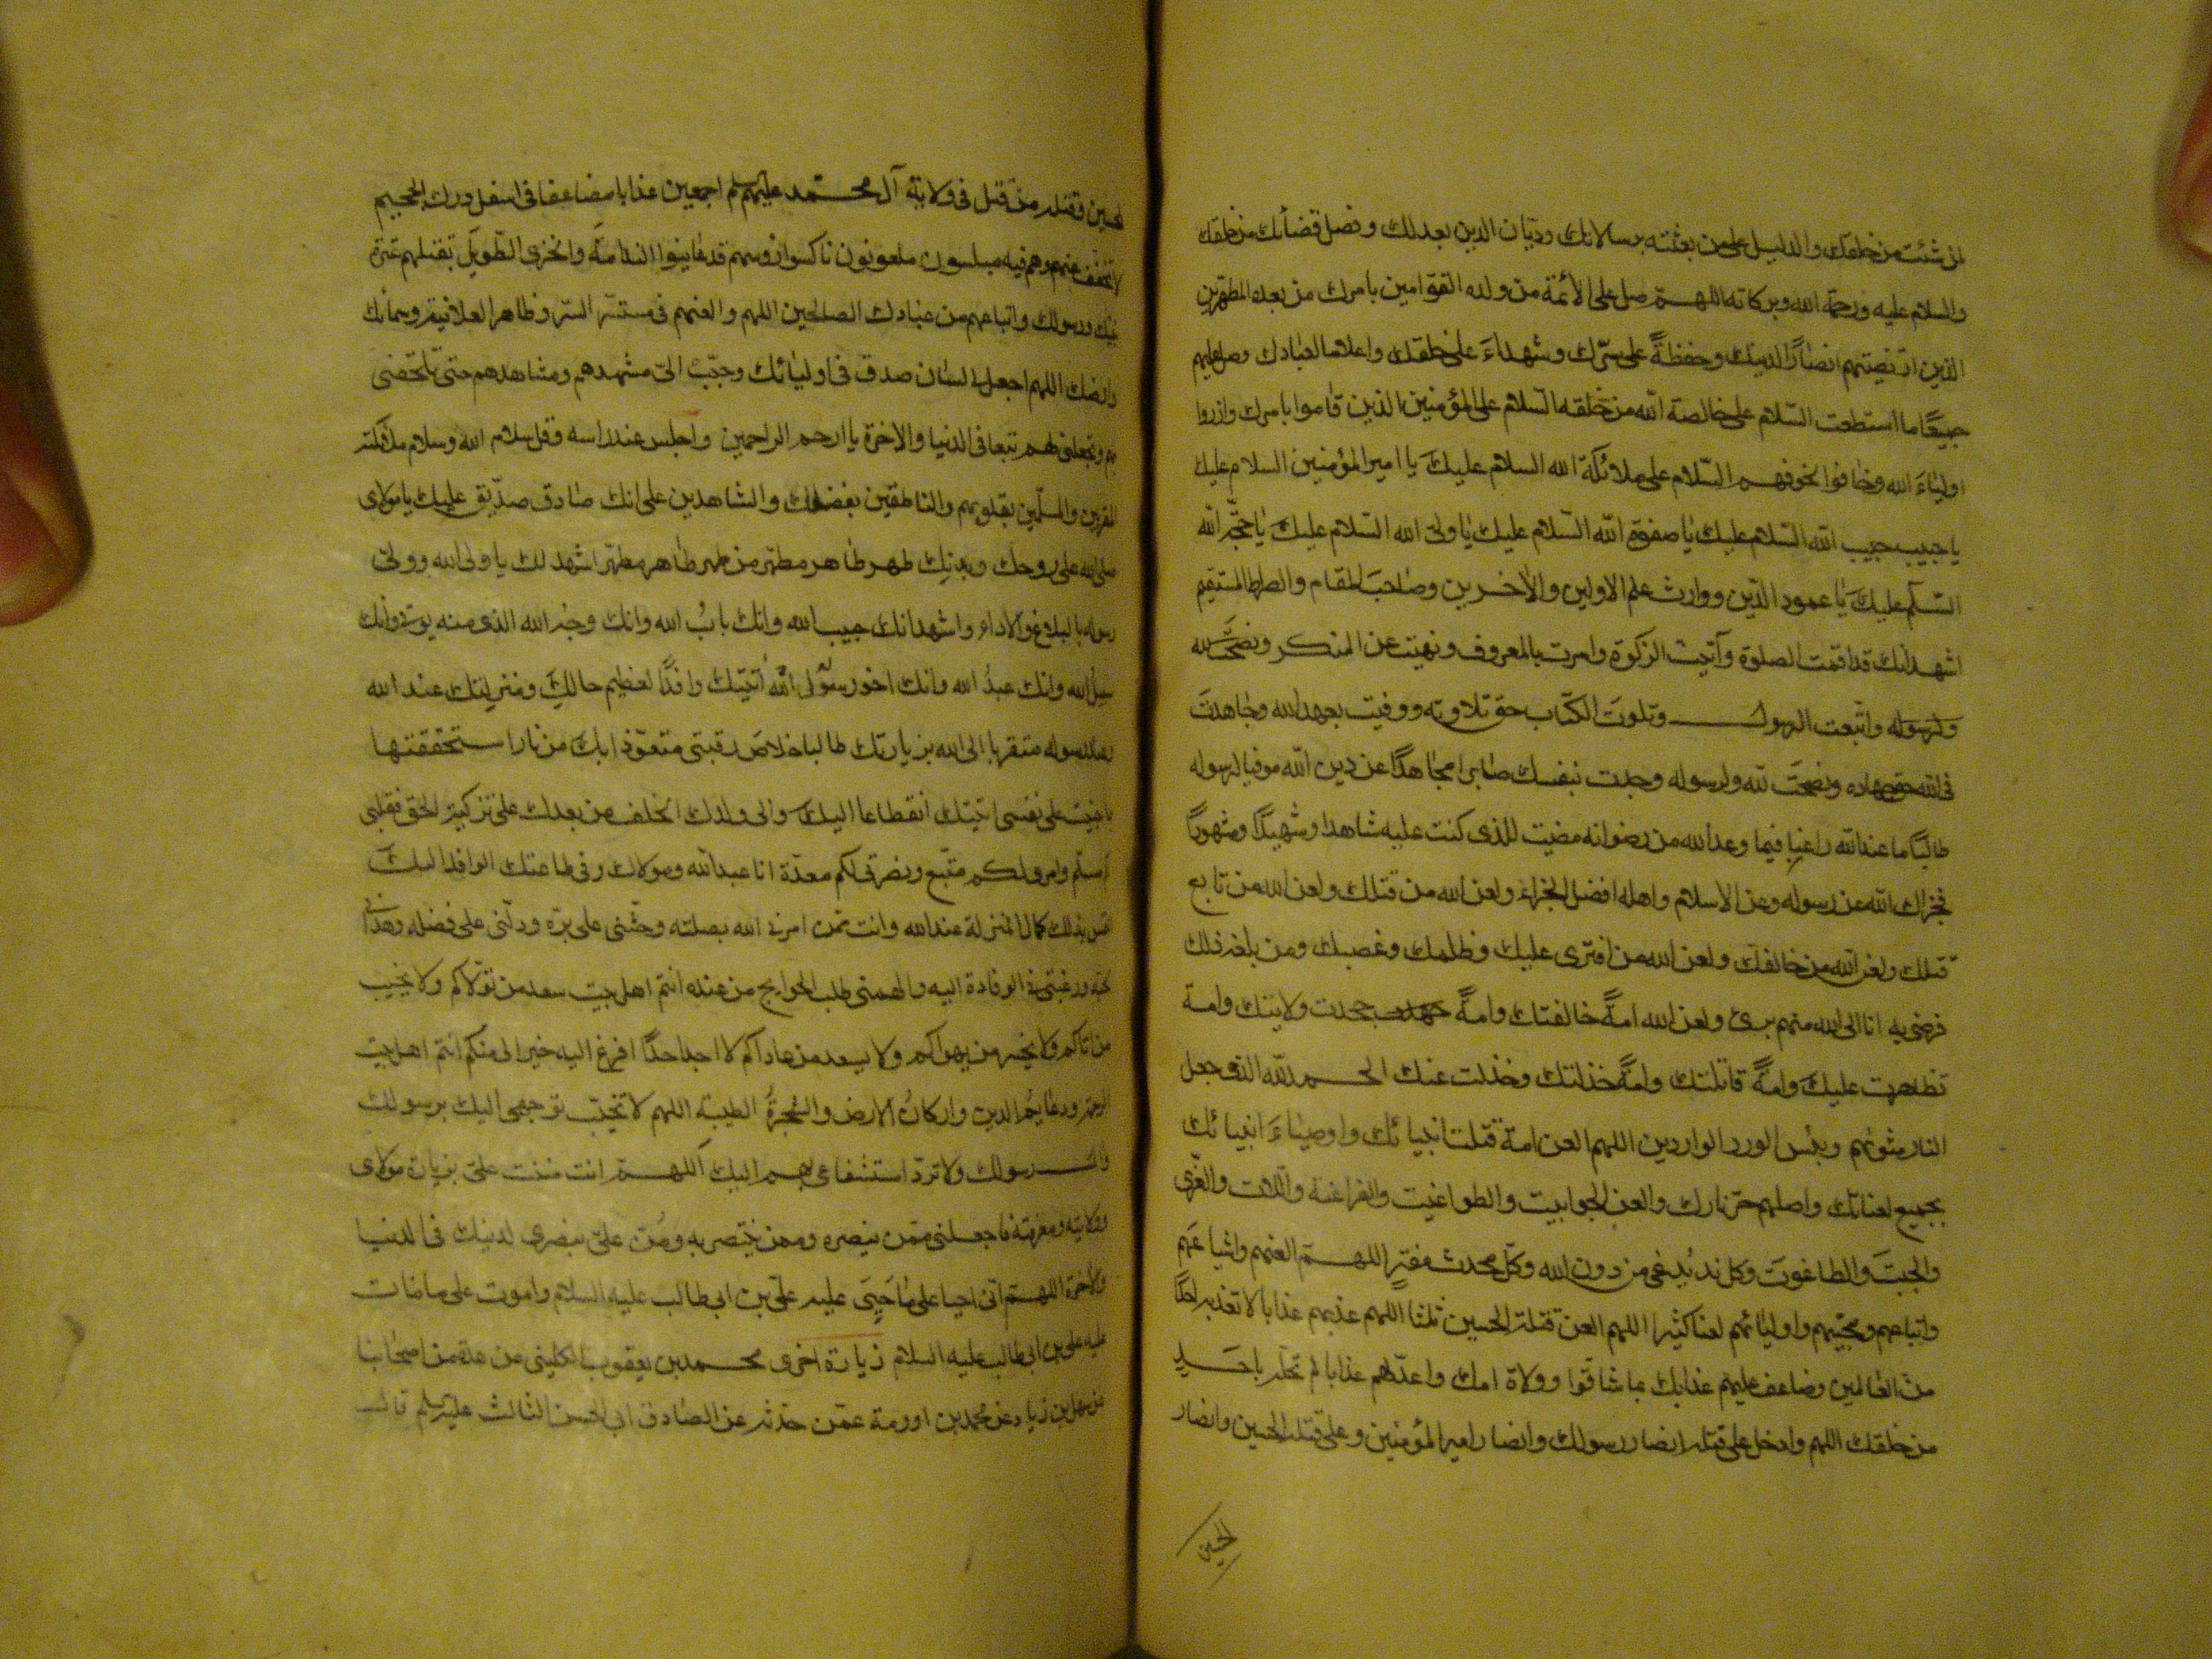 لمن شئت من خلقك والدليل على من بعثته برسالاتك وديّان الدين بعدلك وفصل قضائك من خلقك
والسلام عليه ورحمة الله وبركاته اللهم صل على الأئمة من ولده القوامين بامرك من بعده المطهرين
الذين ارتضيتهم انصارًا لدينك وحفظةً على سرّك وشهداءَ على خلقك واعلاما لعبادك وصل عليهم
جميعًا ما استطعت السّلام على خالصة الله من خلقه السّلام على المؤمنين الذين قاموا بامرك وازروا
اولياءَ الله وخافوا لخوفهم السّلام على ملائكة الله السلام عليكَ يا امير المؤمنين السلام عليك
يا حبيب حبيب الله السّلام عليك يا صفوة الله السّلام عليك يا ولىّ الله السّلام عليكَ يا حجّة الله
السّلم عليكَ يا عمود الدّين ووارث علم الاولين والاخرين وصاحبَ المقام والصراط المستقيم
اشهد انك قد اقمت الصلوة وآتيت الزكوة وامرت بالمعروف ونهيت عن المنكر ونصحتَ لله
ولرسوله واتّبعت الرسول وتلوتَ الكتاب حق تلاوته ووفيت بعهد الله وجاهدتَ
فى الله حق جهاده ونصحتَ لله ولرسوله وجدت بنفسك صابرا مجاهدًا عن دين الله موفيا لرسوله
طالبًا ما عند الله راغبا فيما وعد الله من رضوانه مضيت للذى كنت عليه شاهدا وشهيدًا ومشهودًا
فجزاك الله عن رسوله وعن الاسلام واهله افضل الجزاء ولعن الله من قتلك ولعن الله من تابع
قتلك ولعن الله من خالفك ولعن الله من افترى عليك وظلمك وغصبك ومن بلغه ذلك
فرضى به انا الى الله منهم برىء ولعن الله امةً خالفتك وامةً جحدت ولايتك وامة
تظاهرت عليكَ وامةً قاتلتك وامةً خذلتك وخذلت عنك الحمد لله الذى جعل
النار مثويهم وبئس الورد الواردين اللهم العن امة قتلت انبيائك واوصياءَ انبيائك
بجميع لعناتك واصلهم حرّ نارك والعن الجوابيت والطواغيت والفراعنة واللات والعزّى
والجبتَ والطاغوتَ وكل ندّ يُدعى من دون الله وكلّ محدث مفترٍ اللهم العنهم واشياعهم
واتباعهم ومحبّيهم واوليائهم لعنا كثيرا اللهم العن قتلة الحسين ثلثا اللهم عذبهم عذابا لا تعذبه احدًا
من العالمين وضاعف عليهم عذابك بما شاقّوا وولاة امرك واعدّ لهم عذابا لم تحلّه باحدٍ
من خلقك اللهم وادخل على قتلة انصار رسولك وانصار امير المؤمنين وعلى قتلة الحسين وانصار
الحسين
الحسين وقتلة من قتل فى ولاية آل محمد عليهم السلم اجمعين عذابا مضاعفا فى اسفل درك الجحيم
لا تخفف عنهم وهم فيه مبلسون ملعونون ناكسوا رؤسهم قد عاينوا الندامة والخزى الطّويل بقتلهم عترة
نبيّك ورسولك واتباعهم من عبادك الصالحين اللهم والعنهم فى مستسرّ السّر وظاهر العلانية وسمائك
وارضك اللهم اجعل لى لسان صدق فى اوليائك وحبّب الىّ مشهدهم ومشاهدهم حتى تلحقنى
بهم وتجعلنى لهم تبعا فى الدنيا والاخرة يا ارحم الراحمين واجلس عند راسه وقل سلام الله وسلام ملائكته
المقربين والمسلّمين بقلوبهم والناطقين بفضلك والشاهدين على انك صادق صدّيق عليك يا مولاى
صلى الله على روحك وبدنك طهر طاهر مطهّر من طهر طاهر مطهّر اشهد لك يا ولى الله وولىّ
رسوله بالبلاغ والاداء واشهد انك حبيب الله وانك بابُ الله وانك وجه الله الذى منه يؤتى وانك
سبيل الله وانك عبدُ الله وانك اخو رسول الله اتيتك وافدًا لعظيم حالك ومنزلتك عند الله
وعند رسوله متقربا الى الله بزيارتك طالبا خلاصَ رقبتى متعوّذا بك من نار استحققتها
بما جنيت على نفسى اتيتك انقطاعا اليك والى ولدك الخلف من بعدك على تزكية الحق فقلبى
لكم مسلّم وامرى لكم متّبع ونصرتى لكم معدّة انا عبد الله ومولاك وفى طاعتك الوافد اليك
التمس بذلك كمال المنزلة عند الله وانت ممّن امرنى الله بصلته وحثّنى على برّه ودلّنى على فضله وهدانى
لحبّه ورغبنى فى الوفادة اليه والهمنى طلب الحوايج من عنده انتم اهل بيت سعد من تولّاكم ولا يخيب
من اتاكم ولا يخسر من يهواكم ولا يسعد من عاداكم لا اجد احدًا افزع اليه خيرا لى منكم انتم اهل بيت
الرحمة ودعايمُ الدين واركانُ الارض والشجرةُ الطيبة اللهم لا تخيّب توجهى اليك برسولك
وآل رسولك ولا تردّ استشفاعى بهم اليك اللهم انت مننت علىّ بزيارة مولاى
وولايته ومعرفته فاجعلنى ممّن ينصره وممن ينتصر به ومُنّ علىّ بنصرى لدينك فى الدنيا
والاخرة اللهم انى احيا على ما حَيِىَ عليه علىّ بن ابى طالب عليه السلام واموت على ما مات
عليه على بن ابى طالب عليه السلام زيارة اخرى محمد بن يعقوب الكلينى عن عدة من اصحابنا
عن سهل بن زياد عن محمد بن اورمة عمّن حدّثه عن الصادق ابى الحسن الثالث عليه السلم قال